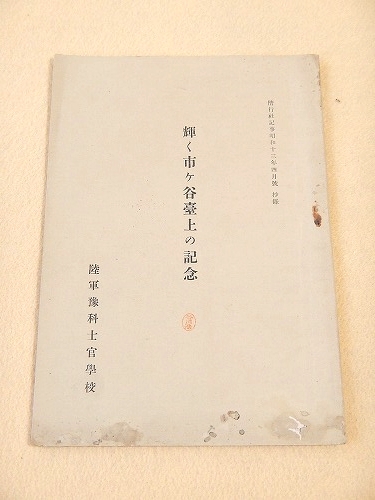 偕行社記事昭和十三年四月號抄録
輝く市ヶ谷臺上の記念
陸軍豫科士官學校